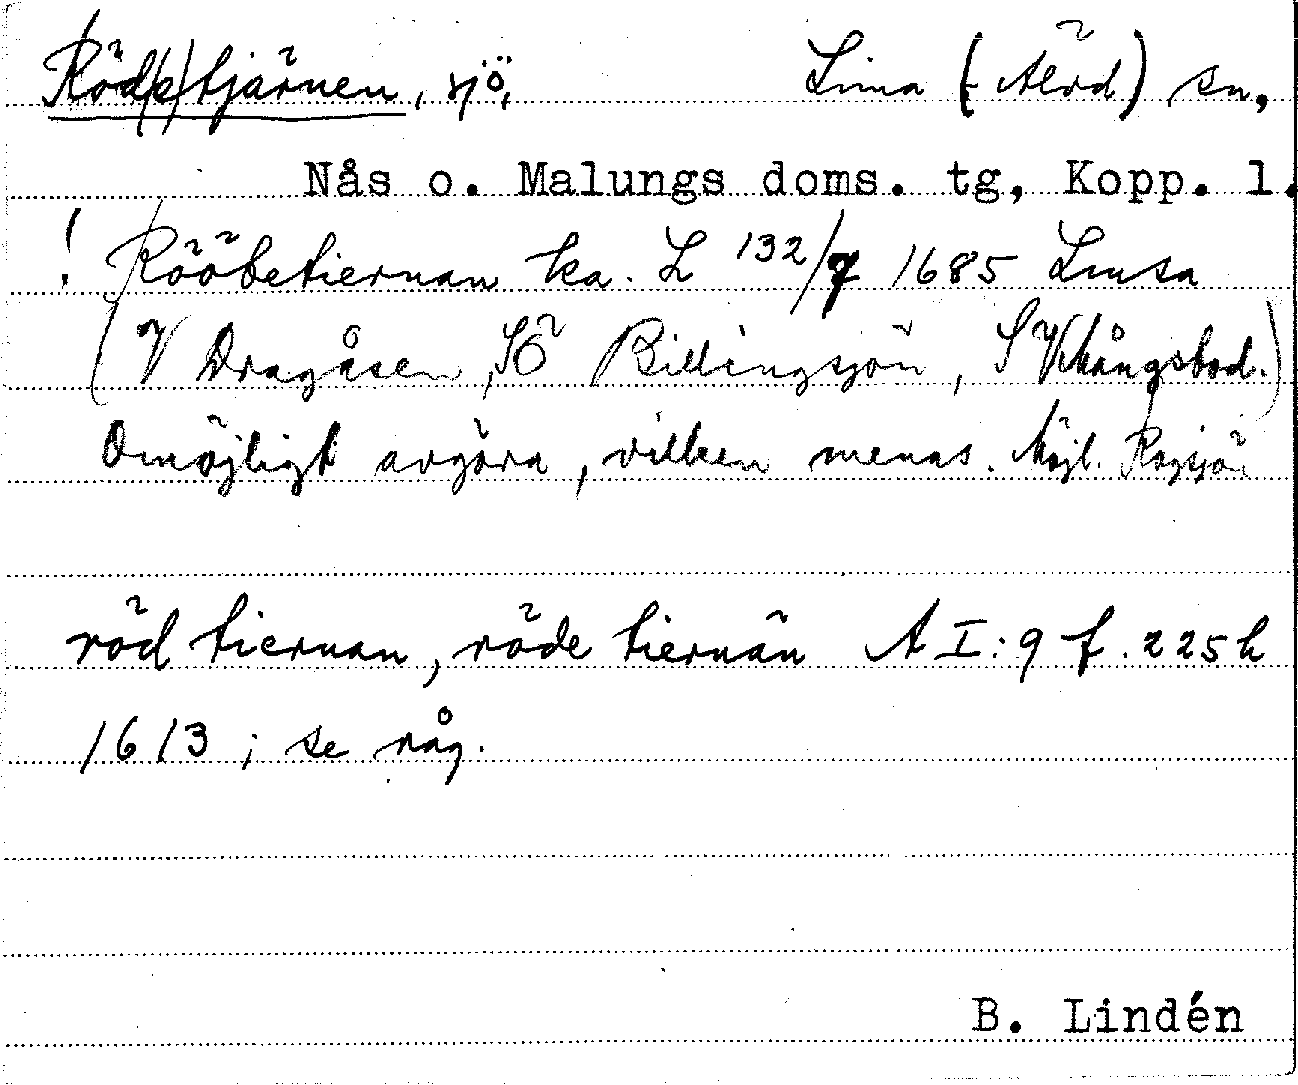 Röd(e)tjärnen, sjö, Lima (Älvd) sn,
Nås o. Malungs doms. tg, Kopp. l.
! Rööbetiernan ka. L 132/7 1685 Limsa
(V Dragåsen, SÖ Billingsjön, S
Omöjligt avgöra, vilken menas. Möjl. Rogsjön
röd tiernan, röde tiernän A I:9 f. 225
1613; se råg.
B. Lindén